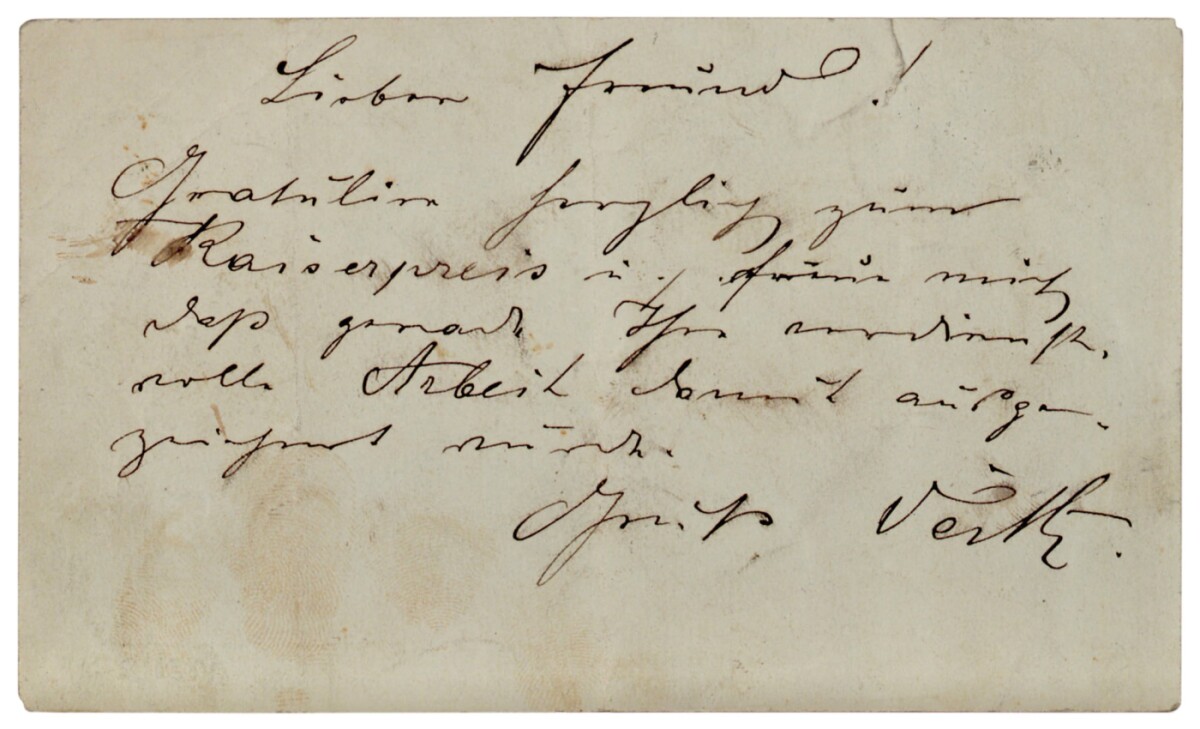 Lieber Freund!
Gratulire herzlich zum
Kaiserpreis u. freue mich
daß gerade Ihre verdienst-
volle Arbeit damit ausge-
zeichnet wurde.
Gruß